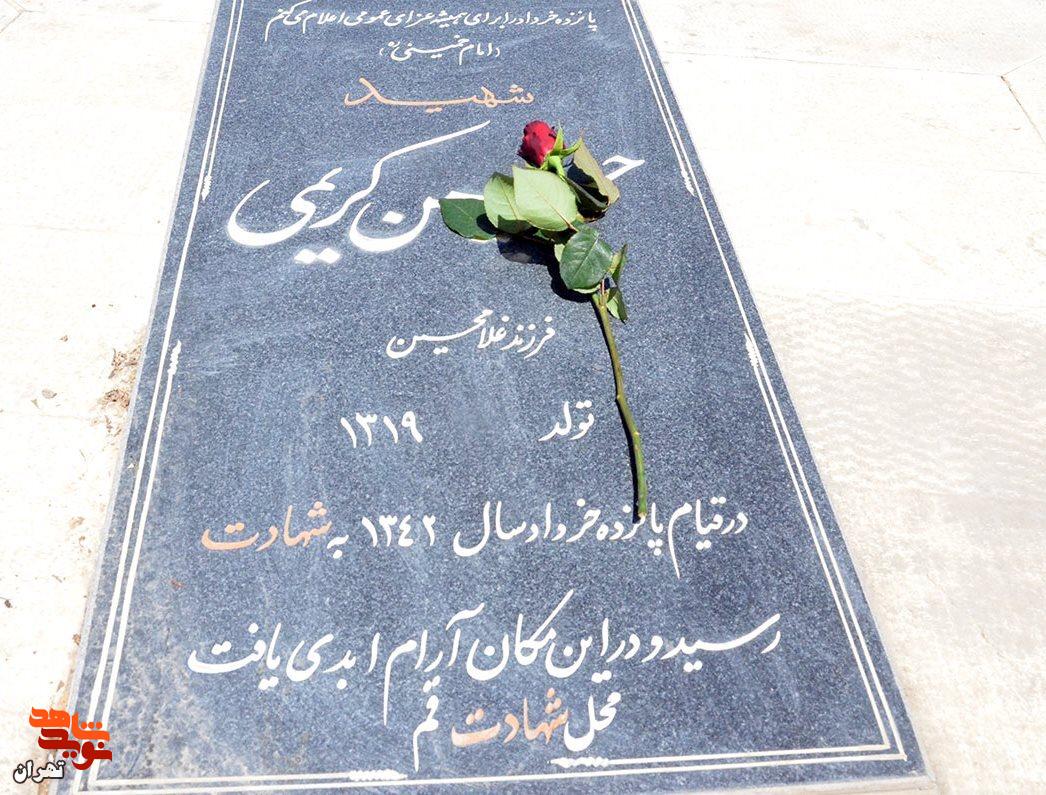 پانزده خرداد را برای همیشه عزای عمومی اعلام می‌کنم
(امام خمینی ره)
شهید
حسن کریمی
فرزند غلامحسین
تولد ۱۳۱۹
در قیام پانزده خرداد سال ۱۳۴۲ به شهادت
رسید و در این مکان آرام ابدی یافت
محل شهادت قم
نوید شاهد
تهران